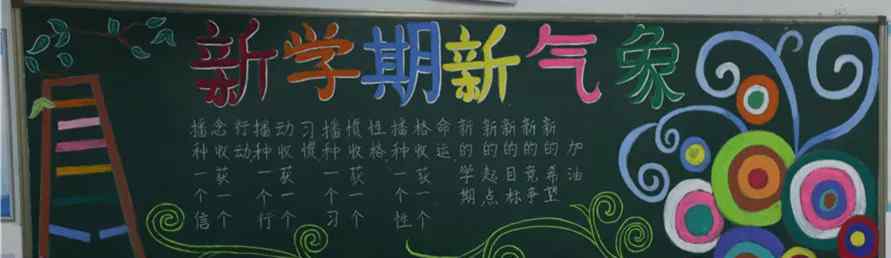 新学期新气象
播种一个信
念收获一个
行动
播种一个行
动收获一个
习惯
播种一个习
惯收获一个
性格
播种一个性
格收获一个
命运
新的学期
新的起点
新的目标
新的竞争
新的希望
加油